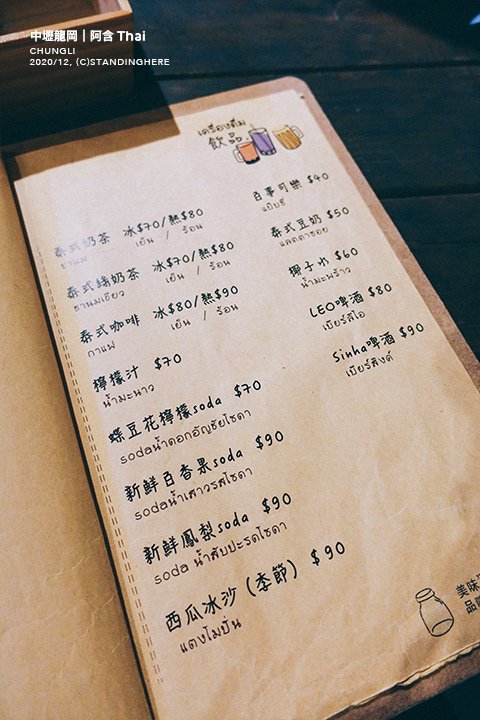 中壢龍岡｜阿含 Thai
CHUNGLI
2020/12, (C)STANDINGHERE
เครื่องดื่ม
飲品
泰式奶茶 冰$70/熱$80
ชานม เย็น / ร้อน
泰式綠奶茶 冰$70/熱$80
ชานมเขียว เย็น / ร้อน
泰式咖啡 冰$80/熱$90
กาแฟ เย็น / ร้อน
檸檬汁 $70
น้ำมะนาว
蝶豆花檸檬soda $70
sodaน้ำดอกอัญชัยโซดา
新鮮百香果soda $90
sodaน้ำเสาวรสโซดา
新鮮鳳梨soda $90
soda น้ำสับปะรดโซดา
西瓜冰沙 (季節) $90
แตงโมปั่น
百事可樂 $40
แป๊บซี่
泰式豆奶 $50
แลคตาซอย
椰子水 $60
น้ำมะพร้าว
LEO啤酒 $80
เบียร์ลีโอ
Sinha啤酒 $90
เบียร์สิงค์
美味